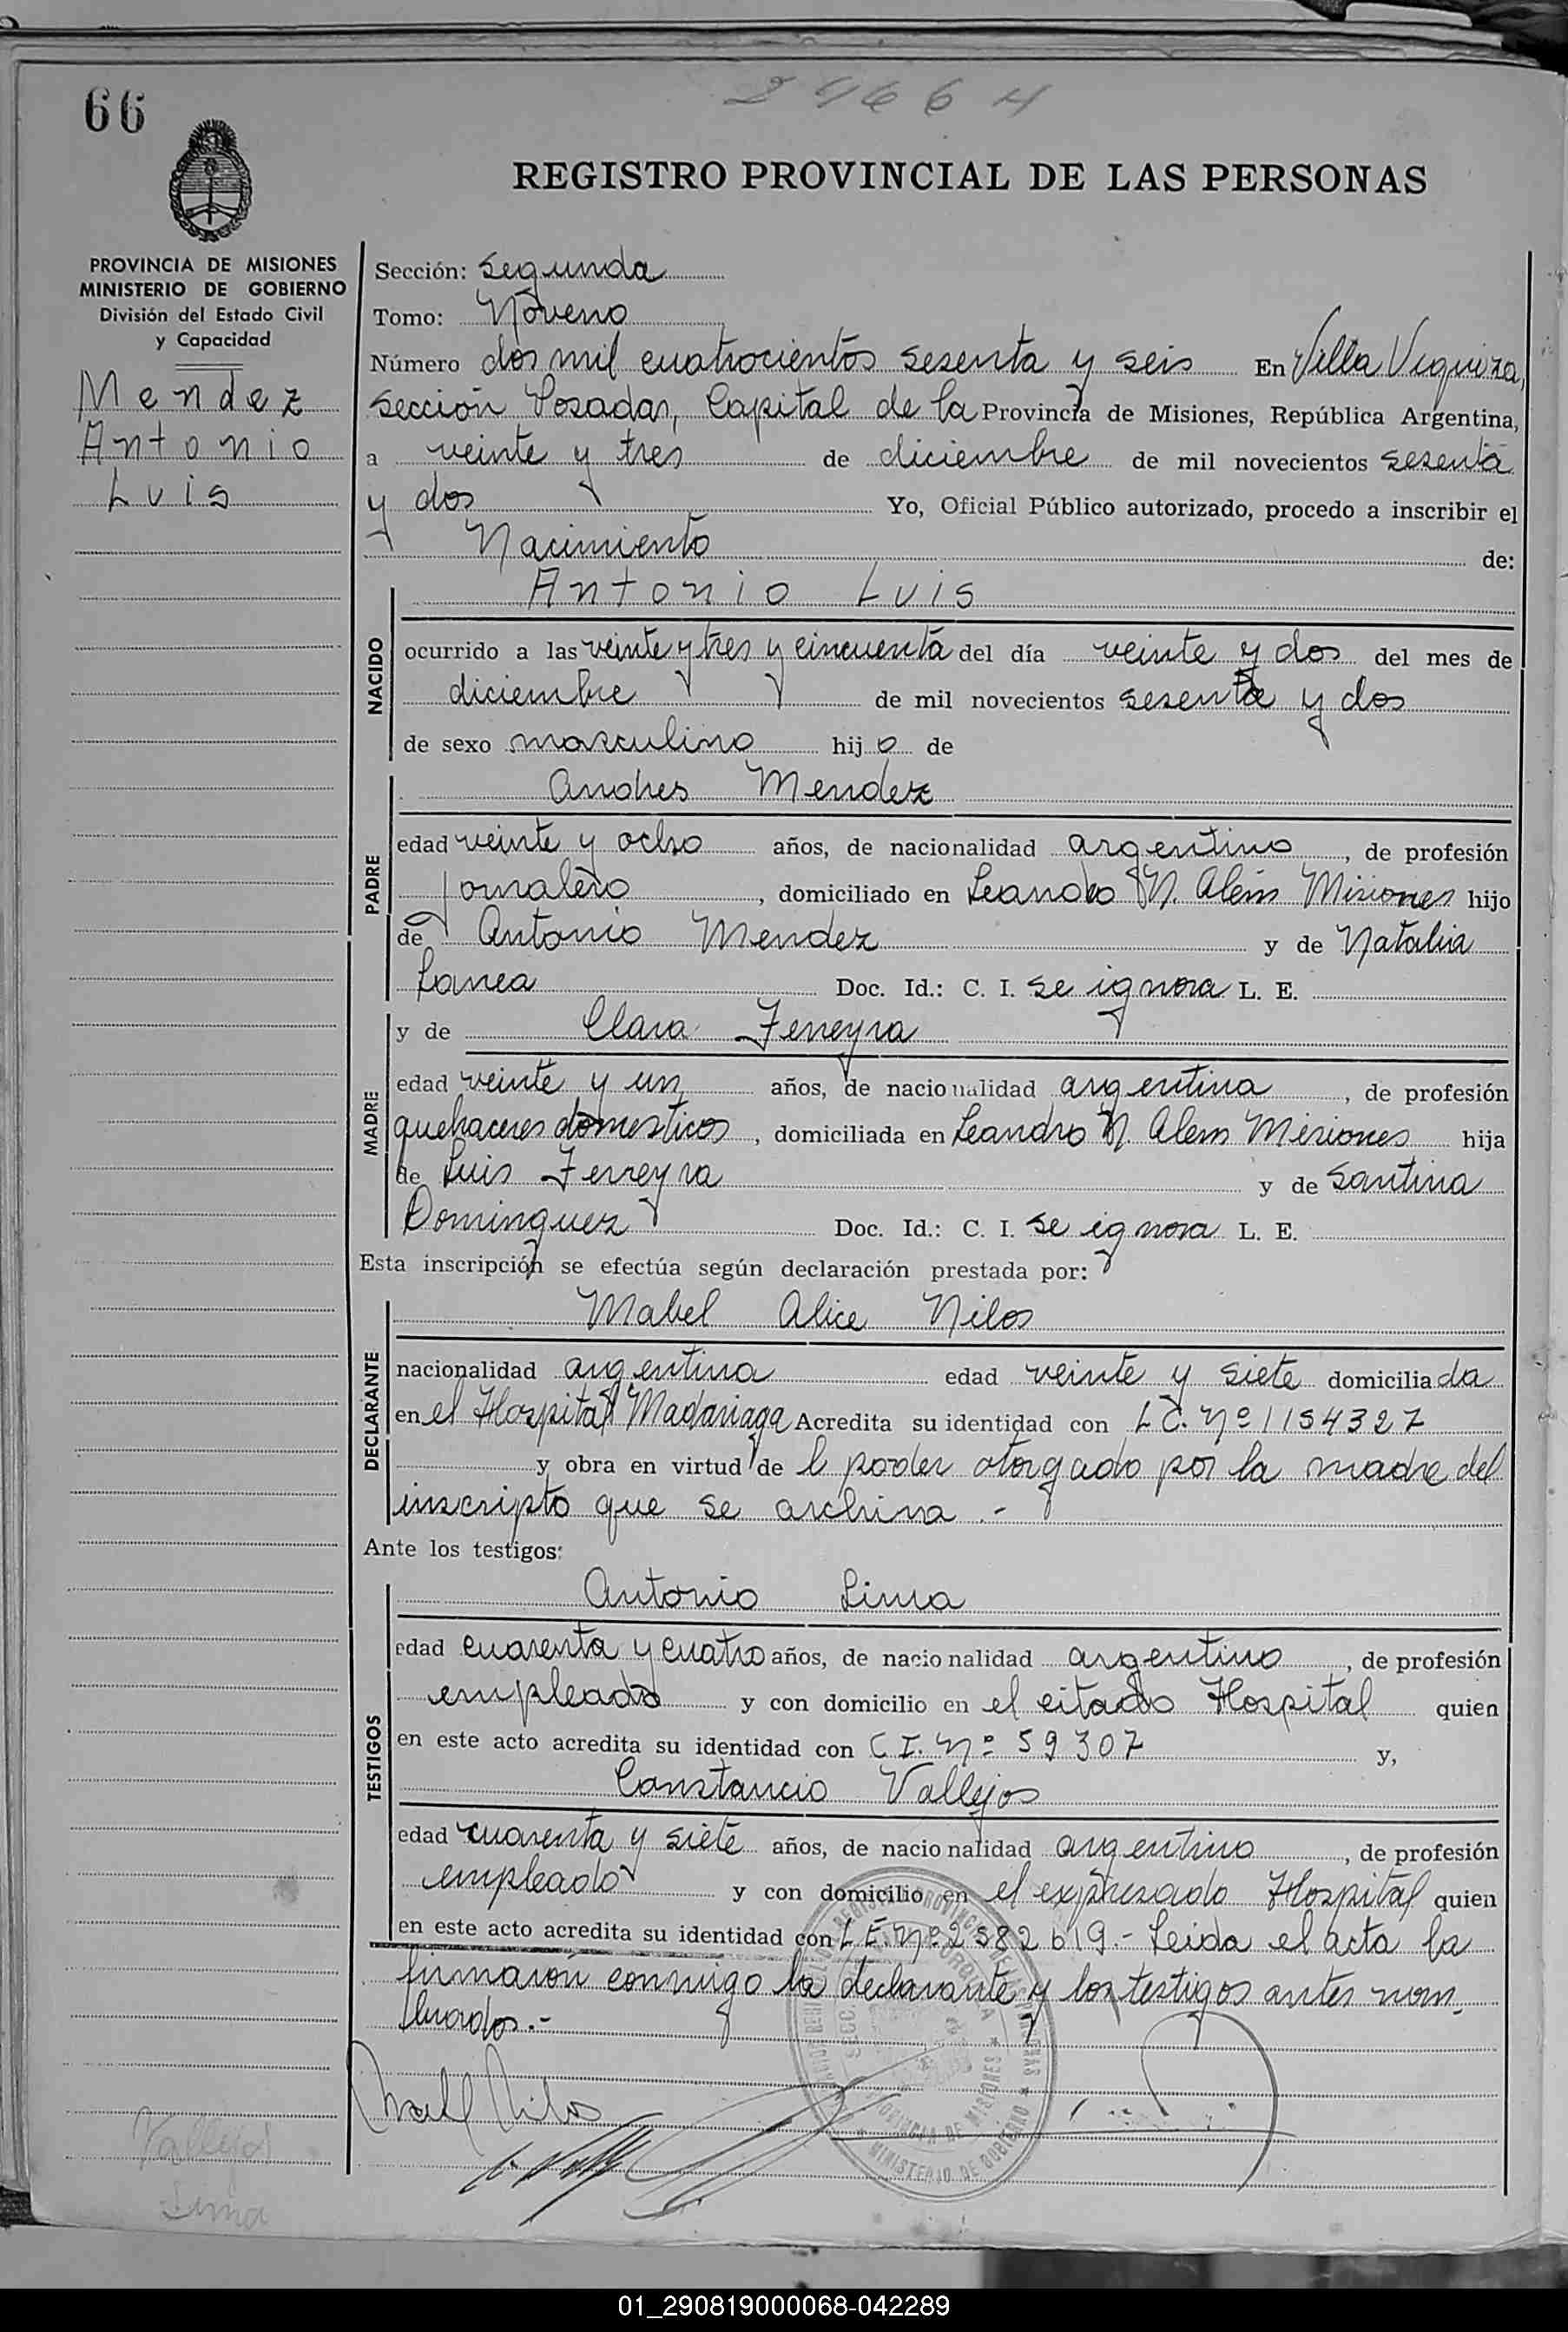 66
REGISTRO PROVINCIAL DE LAS PERSONAS
PROVINCIA DE MISIONES
MINISTERIO DE GOBIERNO
División del Estado Civil
y Capacidad
Mendez
Antonio
Luis
Sección: segunda
Tomo: Noveno
Número dos mil cuatrocientos sesenta y seis En Villa Urquiza,
sección Posadas, Capital de la Provincia de Misiones, República Argentina,
a veinte y tres de diciembre de mil novecientos sesenta
y dos Yo, Oficial Público autorizado, procedo a inscribir el
Nacimiento de:
Antonio Luis
NACIDO
ocurrido a las veinte y tres y cincuenta del día veinte y dos del mes de
diciembre de mil novecientos sesenta y dos
de sexo masculino hijo de
PADRE
Andres Mendez
edad veinte y ocho años, de nacionalidad argentino, de profesión
jornalero, domiciliado en Leandro N. Alem Misiones hijo
de Antonio Mendez y de Natalia
Doc. Id.: C. I. se ignora L. E.
MADRE
y de Clara Ferreyra
edad veinte y un años, de nacionalidad argentina, de profesión
quehaceres domesticos, domiciliada en Leandro N. Alem Misiones hija
de Luis Ferreyra y de Santina
Dominguez Doc. Id.: C. I. se ignora L. E.
Esta inscripción se efectúa según declaración prestada por:
DECLARANTE
Mabel Alice Nilos
nacionalidad argentina edad veinte y siete domiciliada
en el Hospital Madariaga Acredita su identidad con L C. Nº 1154327
y obra en virtud de l poder otorgado por la madre del
inscripto que se archiva.-
Ante los testigos:
TESTIGOS
Antonio Lima
edad cuarenta y cuatro años, de nacionalidad argentino, de profesión
empleado y con domicilio en el citado Hospital quien
en este acto acredita su identidad con C I. Nº 59307 y,
Constancio Vallejos
edad cuarenta y siete años, de nacionalidad argentino, de profesión
empleado y con domicilio en el expresado Hospital quien
en este acto acredita su identidad con L E. Nº 2582619.- Leida el acta la
firmaron conmigo la declarante y los testigos antes nom
brados.-
PROVINCIA DE MISIONES
MINISTERIO DE GOBIERNO
Vallejos
Lima
01_290819000068-042289